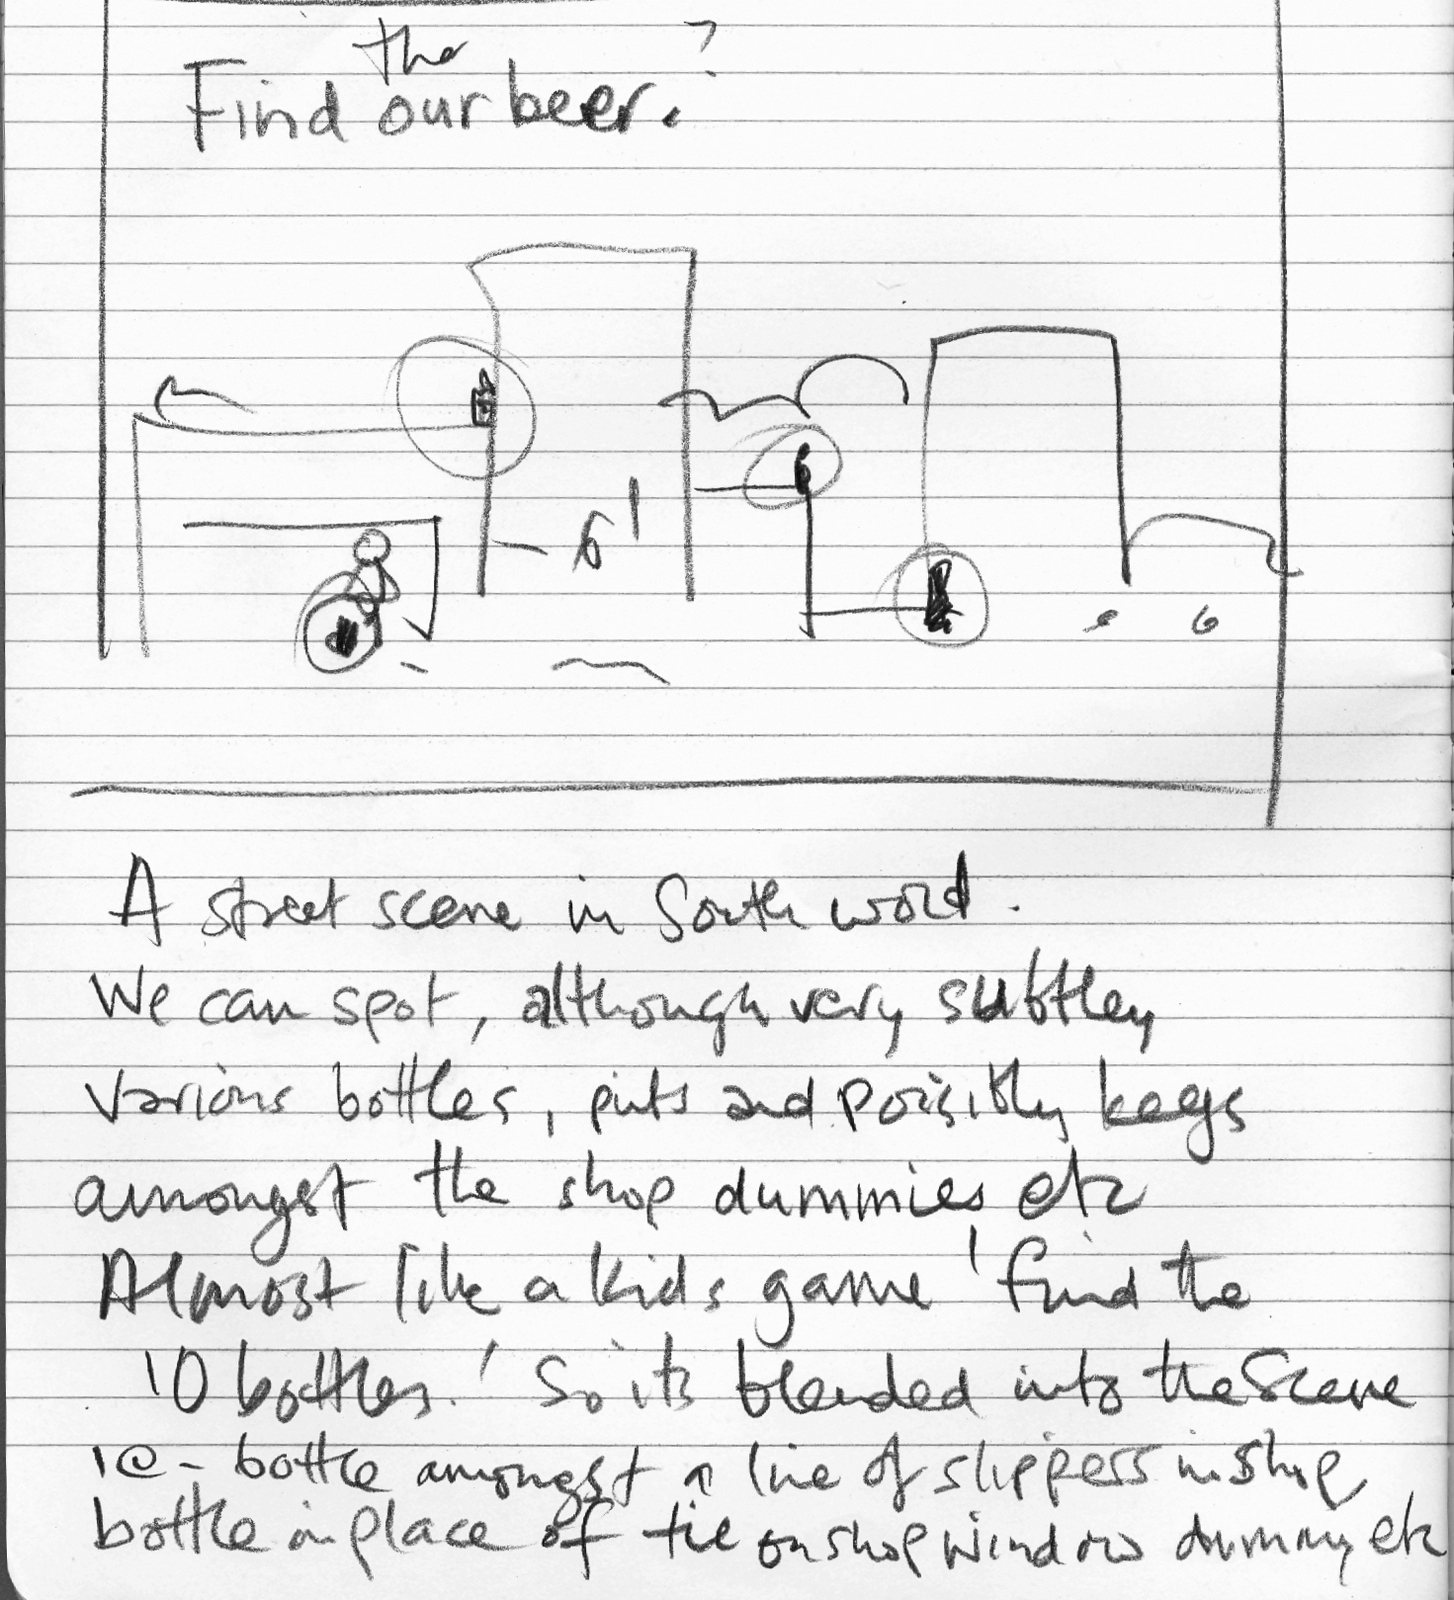 the ?
Find our beer.
A street scene in South wold.
We can spot, although very subtley
various bottles, pints and poisibly kegs
amongst the shop dummies etc
Almost like a kids game 'find the
10 bottles.' So its blended into the Scene
ie - bottle amongst a line of slippers in shop,
bottle in place of tie on shop window dummy, etc